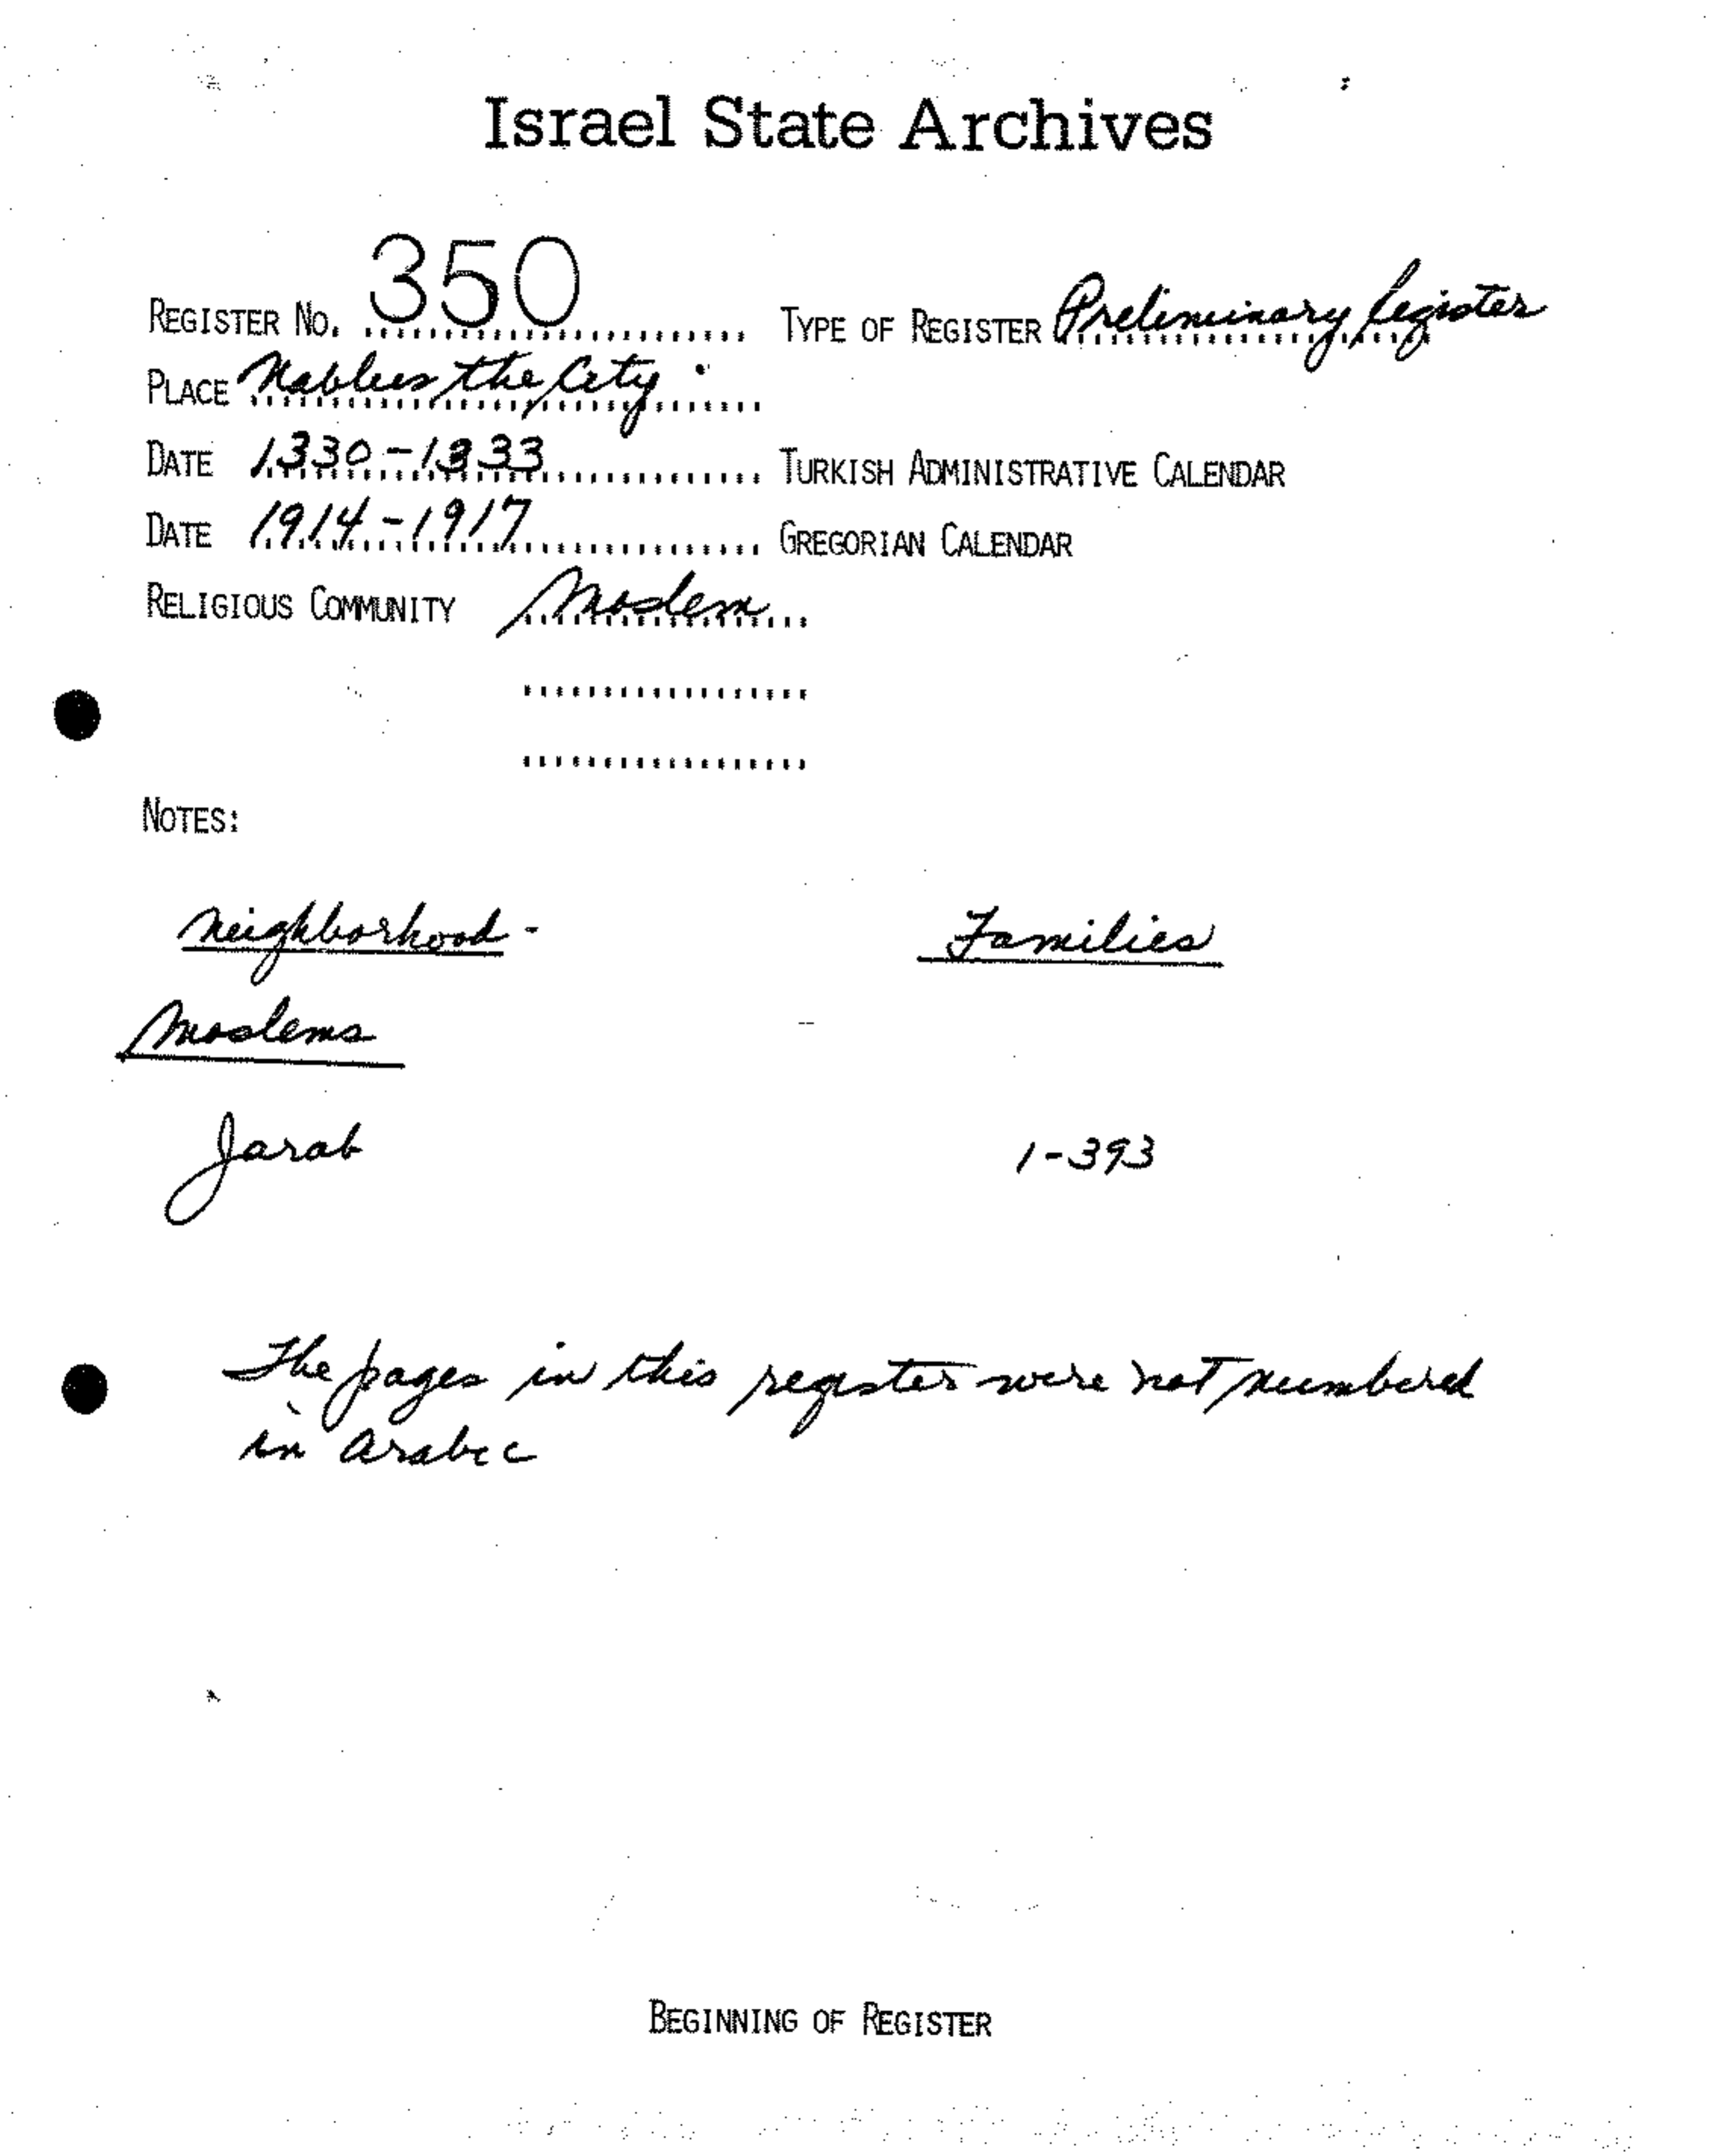 Israel State Archives
REGISTER NO. 350 TYPE OF REGISTER Preliminary Register
PLACE Nablus the City
DATE 1330-1333 TURKISH ADMINISTRATIVE CALENDAR
DATE 1914-1917 GREGORIAN CALENDAR
RELIGIOUS COMMUNITY Moslem
NOTES:
Neighborhood - Families
Moslems
Jarab 1-393
The pages in this register were not numbered
in Arabic
BEGINNING OF REGISTER